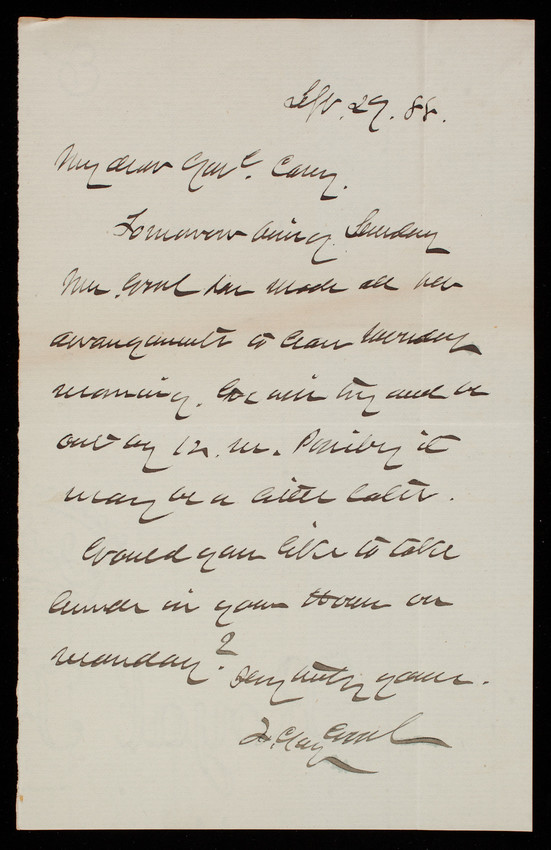 Sept. 29. 88.
My dear Genl. Casey.
Tomorrow being Sunday
Mrs. has made all her
arrangements to leave Monday
morning. We will try and be
out by 12. M. Possibly it
may be a little later.
Would you like to take
lunch in your House on
Monday?
Very truly yours.